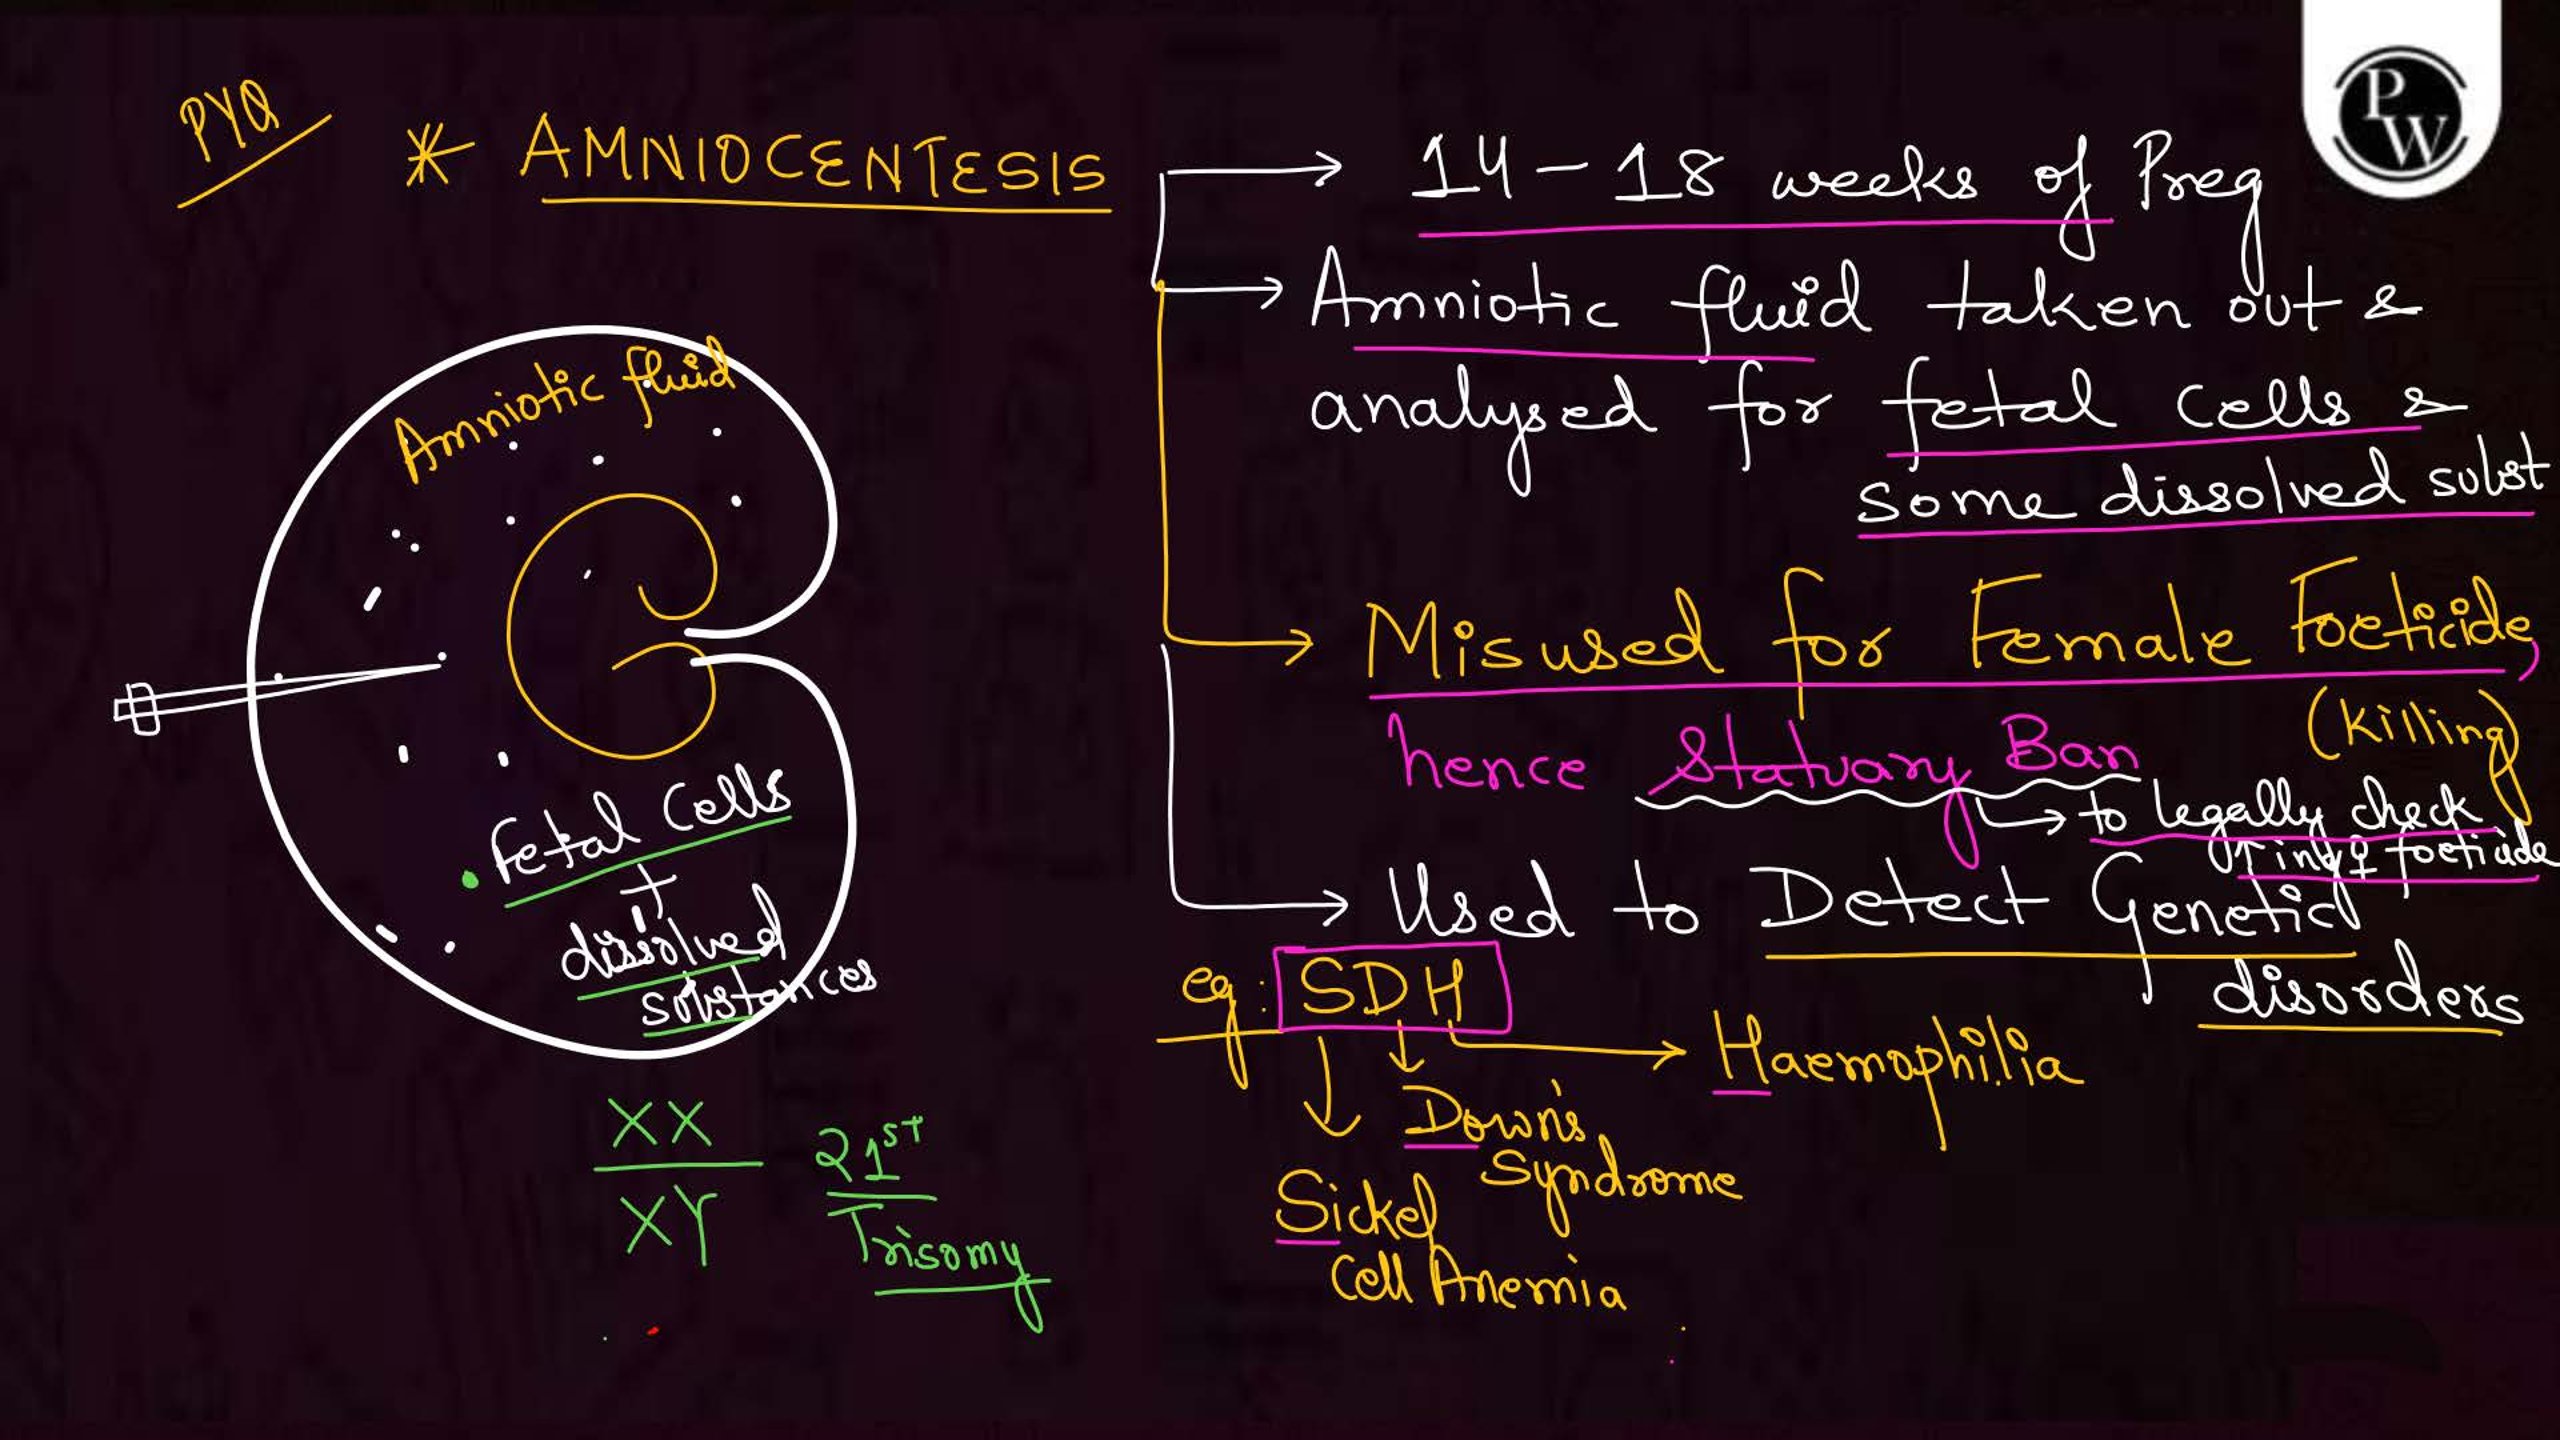 PYQ
* AMNIOCENTESIS
Amniotic fluid
Fetal Cells
+
dissolved
substances
XX
XY
21ST
Trisomy
14-18 weeks of Preg
Amniotic fluid taken out &
analysed for fetal cells &
some dissolved subst
Misused for Female Foeticide,
(killing)
hence Statuary Ban
→ to legally check
↑ing ♀ foeticide
Used to Detect Genetic
disorders
eg: SDH
Haemophilia
Down's
Syndrome
Sickel
Cell Anemia
PW